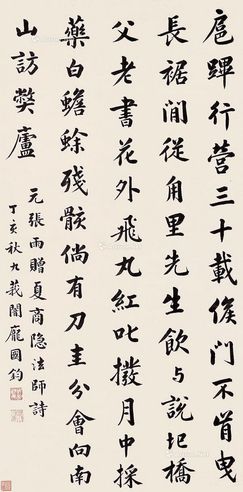 扈蹕行營三十載侯門不肯
長裾閒從角里先生飲与說圯橋
父老書花外飛丸紅叱撥月中採
藥白蟾蜍殘骸倘有刀圭分會向南
山訪弊廬
元張雨贈夏商隐法師詩
丁亥秋九莪闇龐國鈞